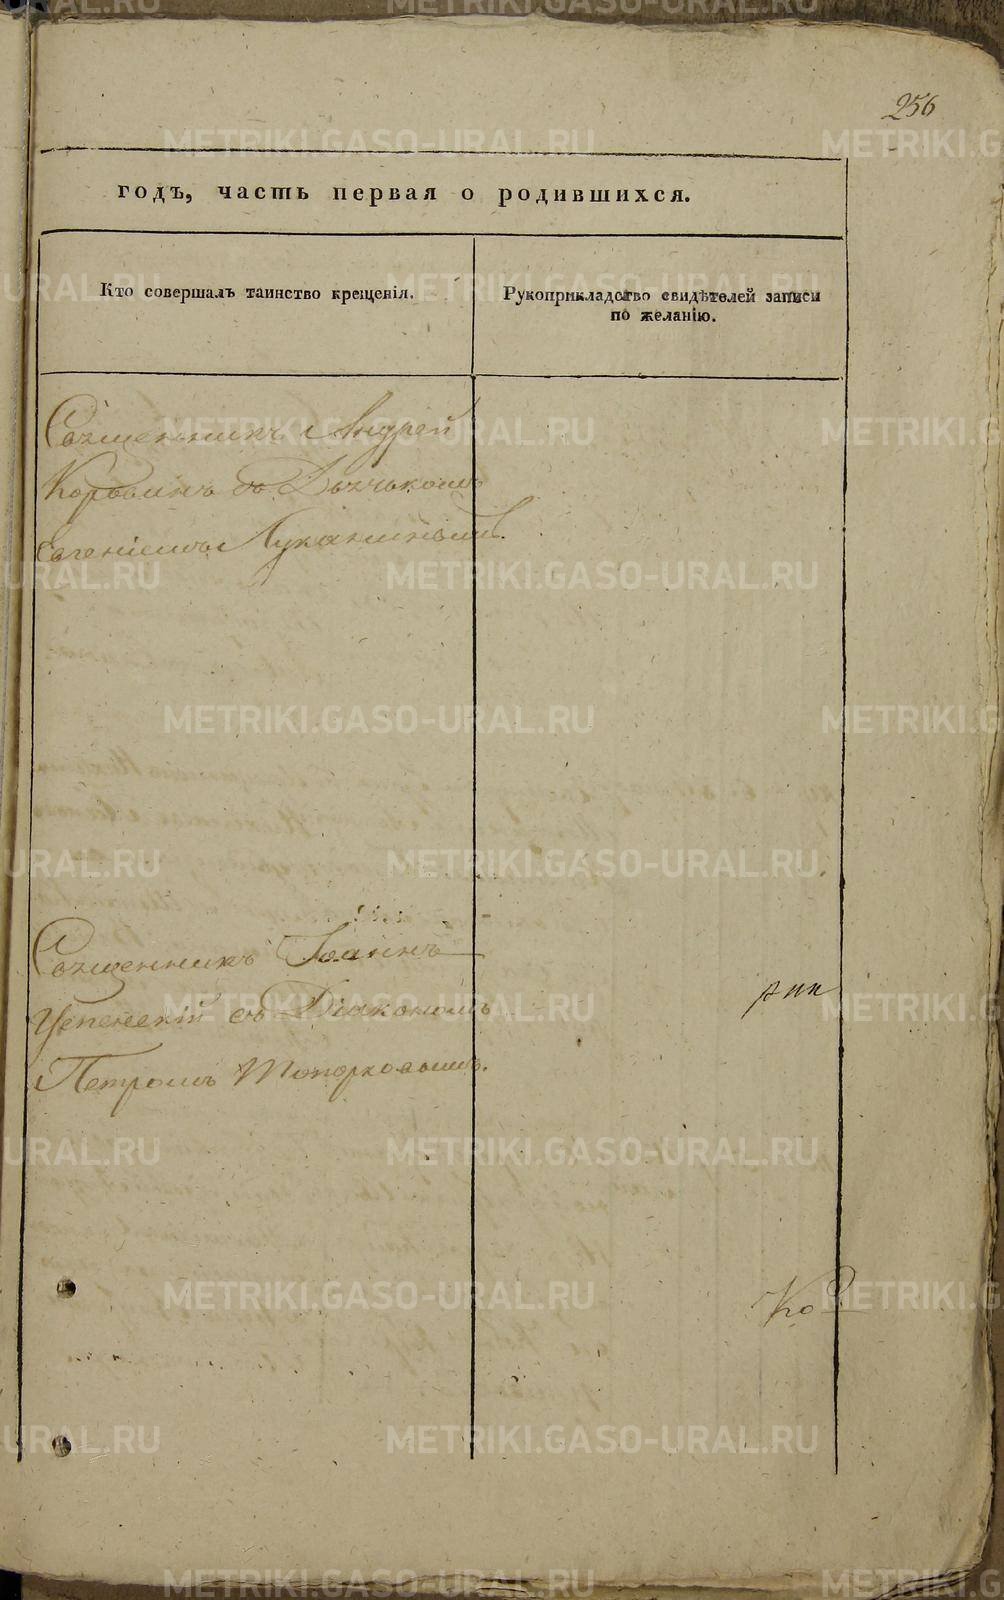 256
годъ, часть первая о родившихся.
Кто совершалъ таинство крещенія.
Рукоприкладство свидѣтелей записи
по желанію.
Священникъ Андрей
съ Дьячькомъ
Евгеніемъ Луканинымъ.
Священникъ Іоаннъ
Успенскій съ Діякономъ
Петромъ Топорковымъ.
METRIKI.GASO-URAL.RU